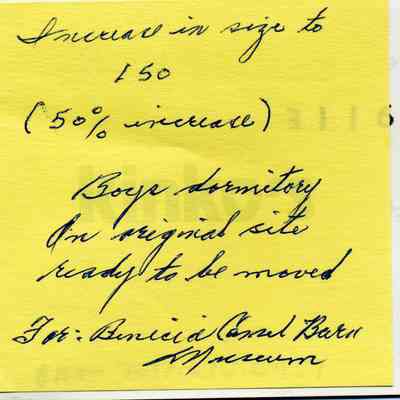 Increase in size to
150
(50% increase)
Boys dormitory
On original site
ready to be moved
For: Benicia Camel Barn
Museum